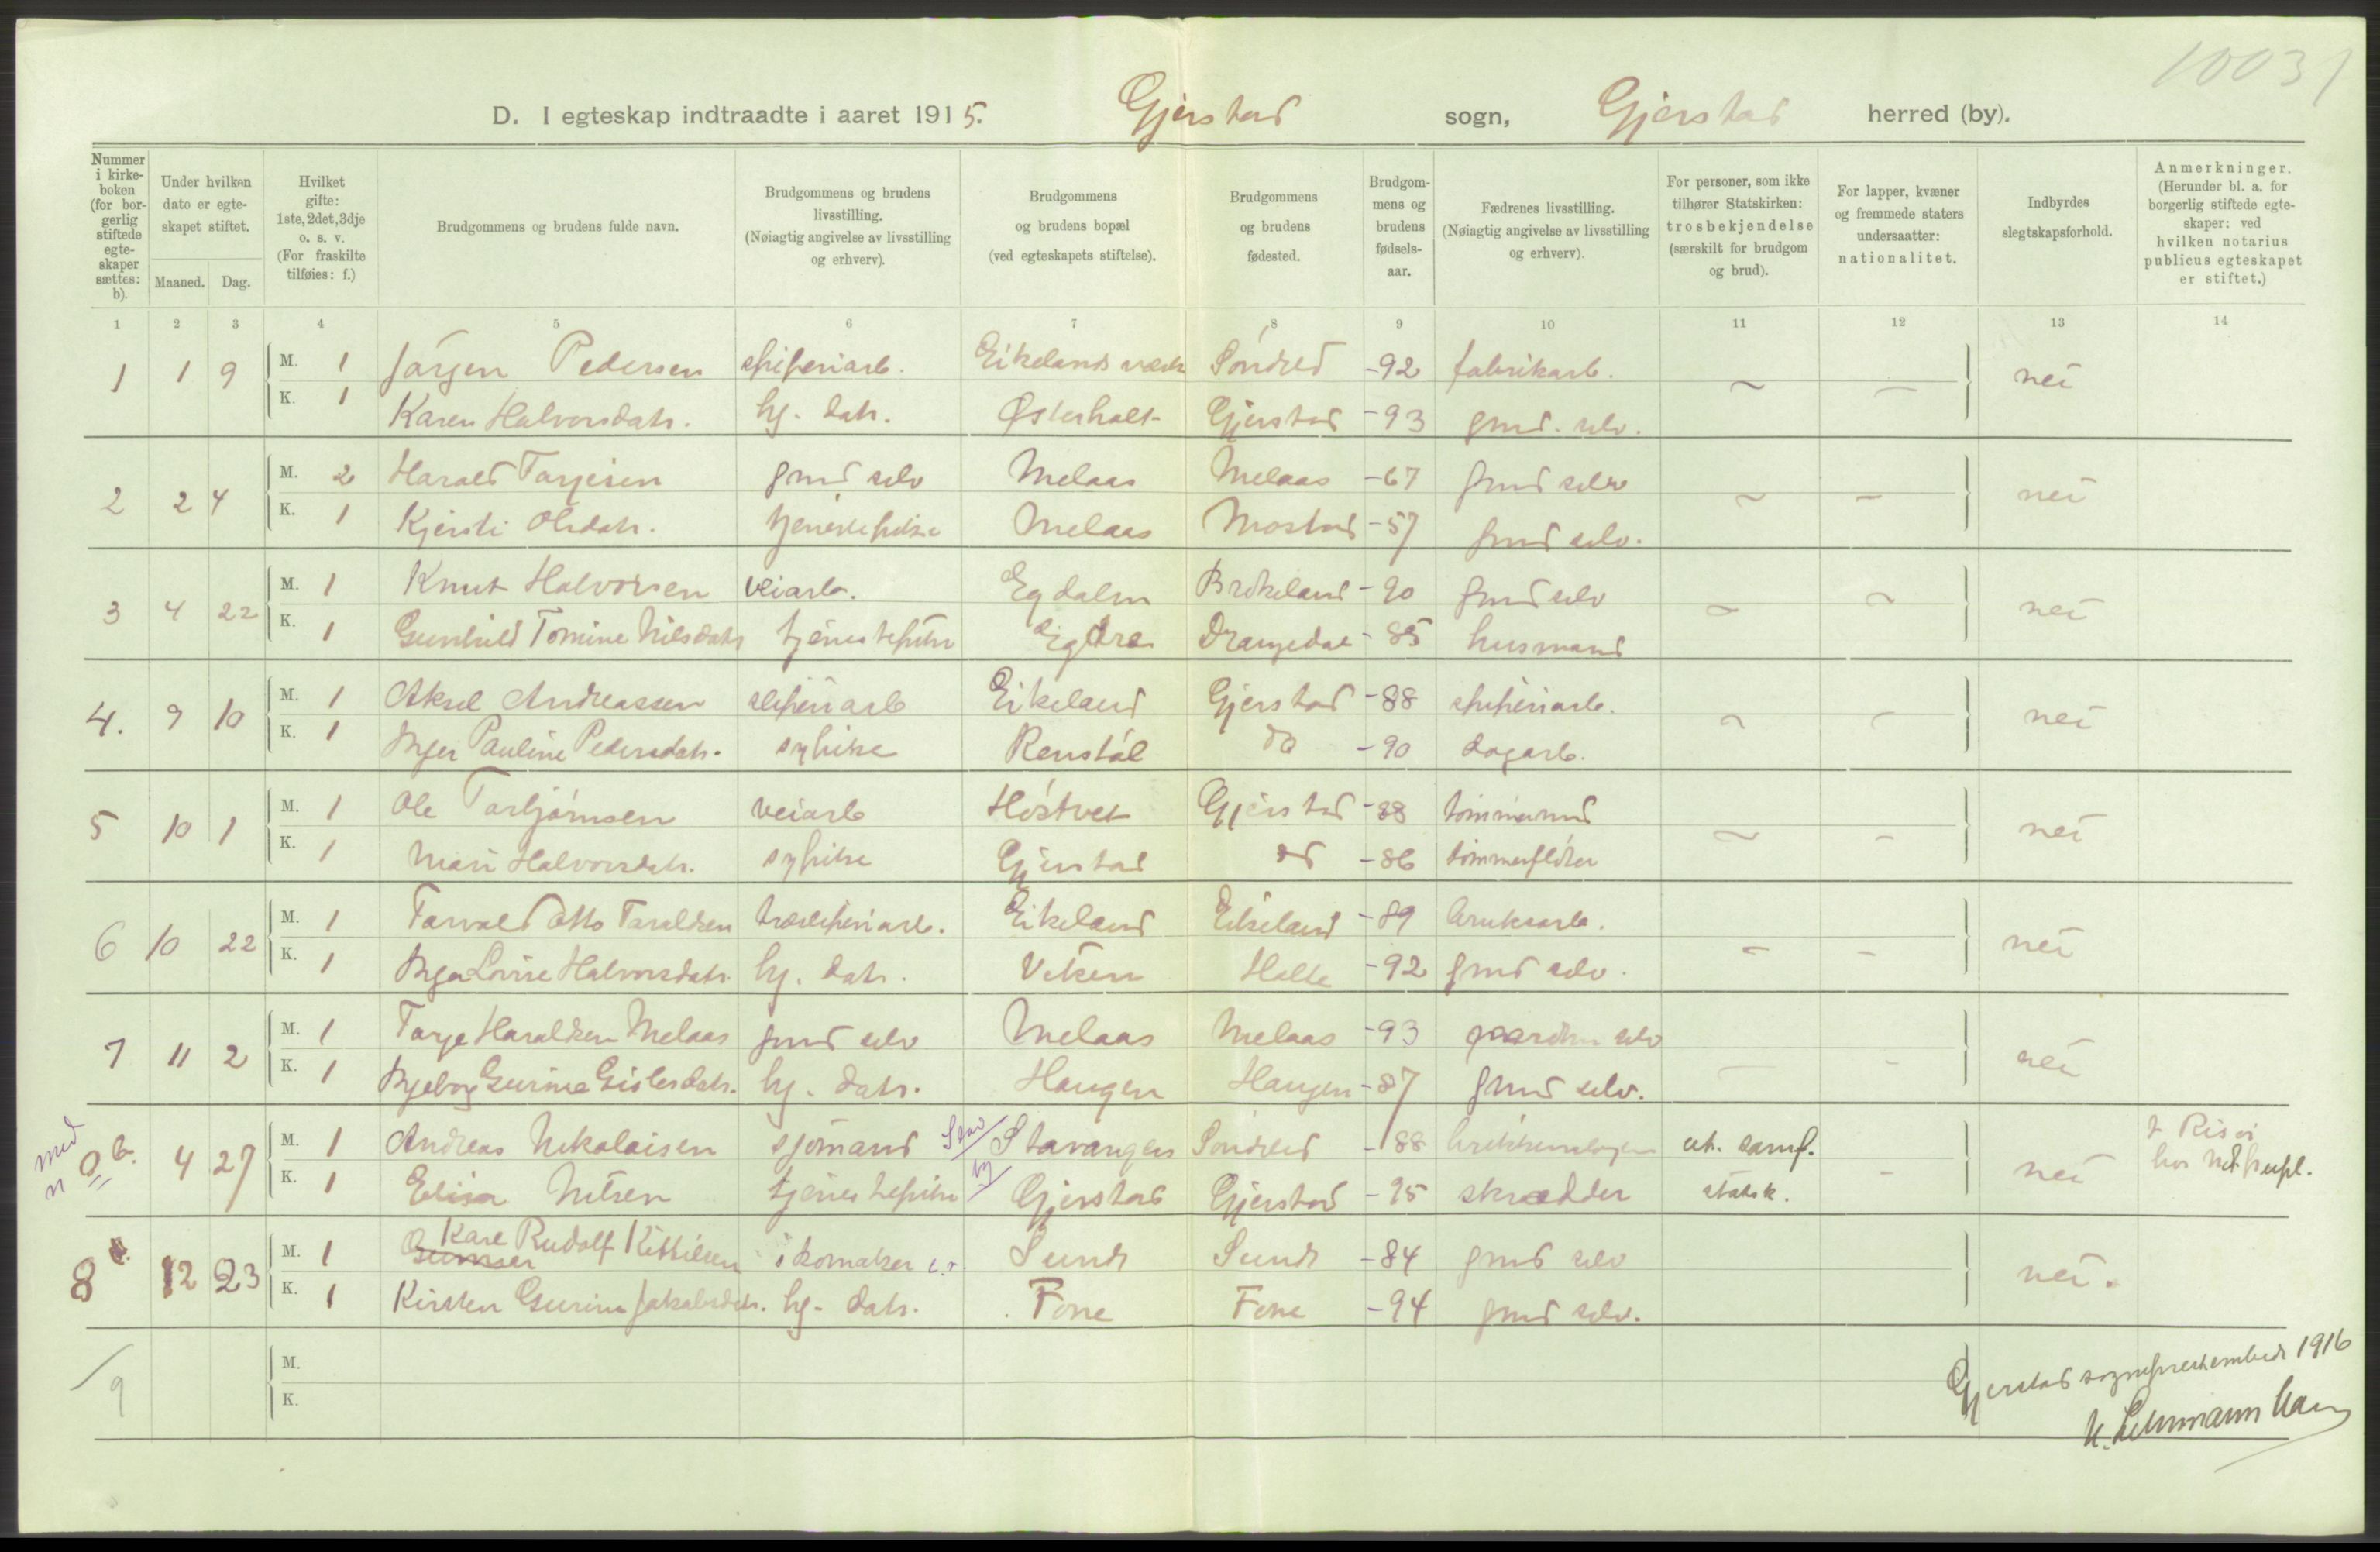 10031
D. I egteskap indtraadte i aaret 1915. Gjerstad sogn, Gjerstad herred (by).
Nummer i kirke-boken (for bor-gerlig stiftede egte-skaper sættes: b).
Under hvilken dato er egte-skapet stiftet.
Maaned. Dag.
Hvilket gifte: 1ste, 2det, 3dje o. s. v. (For fraskilte tilføies: f.)
Brudgommens og brudens fulde navn.
Brudgommens og brudens livsstilling. (Nøiagtig angivelse av livsstilling og erhverv).
Brudgommens og brudens bopæl (ved egteskapets stiftelse).
Brudgommens og brudens fødested.
Brudgom-mens og brudens fødsels-aar.
Fædrenes livsstilling. (Nøiagtig angivelse av livsstilling og erhverv).
For personer, som ikke tilhører Statskirken: trosbekjendelse (særskilt for brudgom og brud).
For lapper, kvæner og fremmede staters undersaatter: nationalitet.
Indbyrdes slegtskapsforhold.
Anmerkninger. (Herunder bl. a. for borgerlig stiftede egte-skaper: ved hvilken notarius publicus egteskapet er stiftet.)
1 2 3 4 5 6 7 8 9 10 11 12 13 14
1 1 9 M. 1 Jørgen Pedersen sliperiarb. Eikelands værk Søndled -92 fabrikarb. ~ — nei
K. 1 Karen Halvorsdatr. hj. datr. Østerholt Gjerstad -93 grd. selv.
2 2 4 M. 2 Harald Tarjeisen grd selv Melaas Melaas -67 grd selv ~ — nei
K. 1 Kjersti Olsdatr. tjenestepike Melaas Mostad -57 grd selv.
3 4 22 M. 1 Knut Halvorsen veiarb. Egdalen Brokeland -90 grd selv ~ ~ nei
K. 1 Gunhild Tomine Nilsdatr tjenestepike Egdra Drangedal -85 husmand
4. 9 10 M. 1 Aksel Andreassen sliperiarb Eikeland Gjerstad -88 sliperiarb. ~ — nei
K. 1 Inger Pauline Pedersdatr. sypike Renstøl do -90 dagarb.
5 10 1 M. 1 Ole Torbjørnsen veiarb Høstvet Gjerstad -88 tømmermd ~ - nei
K. 1 Mari Halvorsdatr. sypike Gjerstad do -86 tømmerfløter
6 10 22 M. 1 Torvald Otto Taraldsen træsliperiarb. Eikeland Eikeland -89 bruksarb. - - nei
K. 1 Inga Lovise Halvorsdatr. hj. datr. Viken Holte -92 grd selv.
7 11 2 M. 1 Tarje Haraldsen Melaas grd selv Melaas Melaas -93 selv — - nei
K. 1 Ingeborg Gurine Gislesdatr. hj. datr. Haugen Haugen -87 grd selv.
med n 0 b. 4 27 M. 1 Andreas Nikolaisen sjømand Stav by Stavanger Søndeled -88 ut. samf. - nei i Risør hos Not. publ.
K. 1 Elisa Nilsen tjenestepike Gjerstad Gjerstad -95 skrædder statsk.
8 12 23 M. 1 Gunder Karl Rudolf Kittilsen skomaker Sunde Sunde -84 grd selv nei.
K. 1 Kirsten Gurine Jakobsdatr. hj. datr. Fone Fone -94 grd selv.
9 M.
K.
Gjerstad sogneprestembede 1916